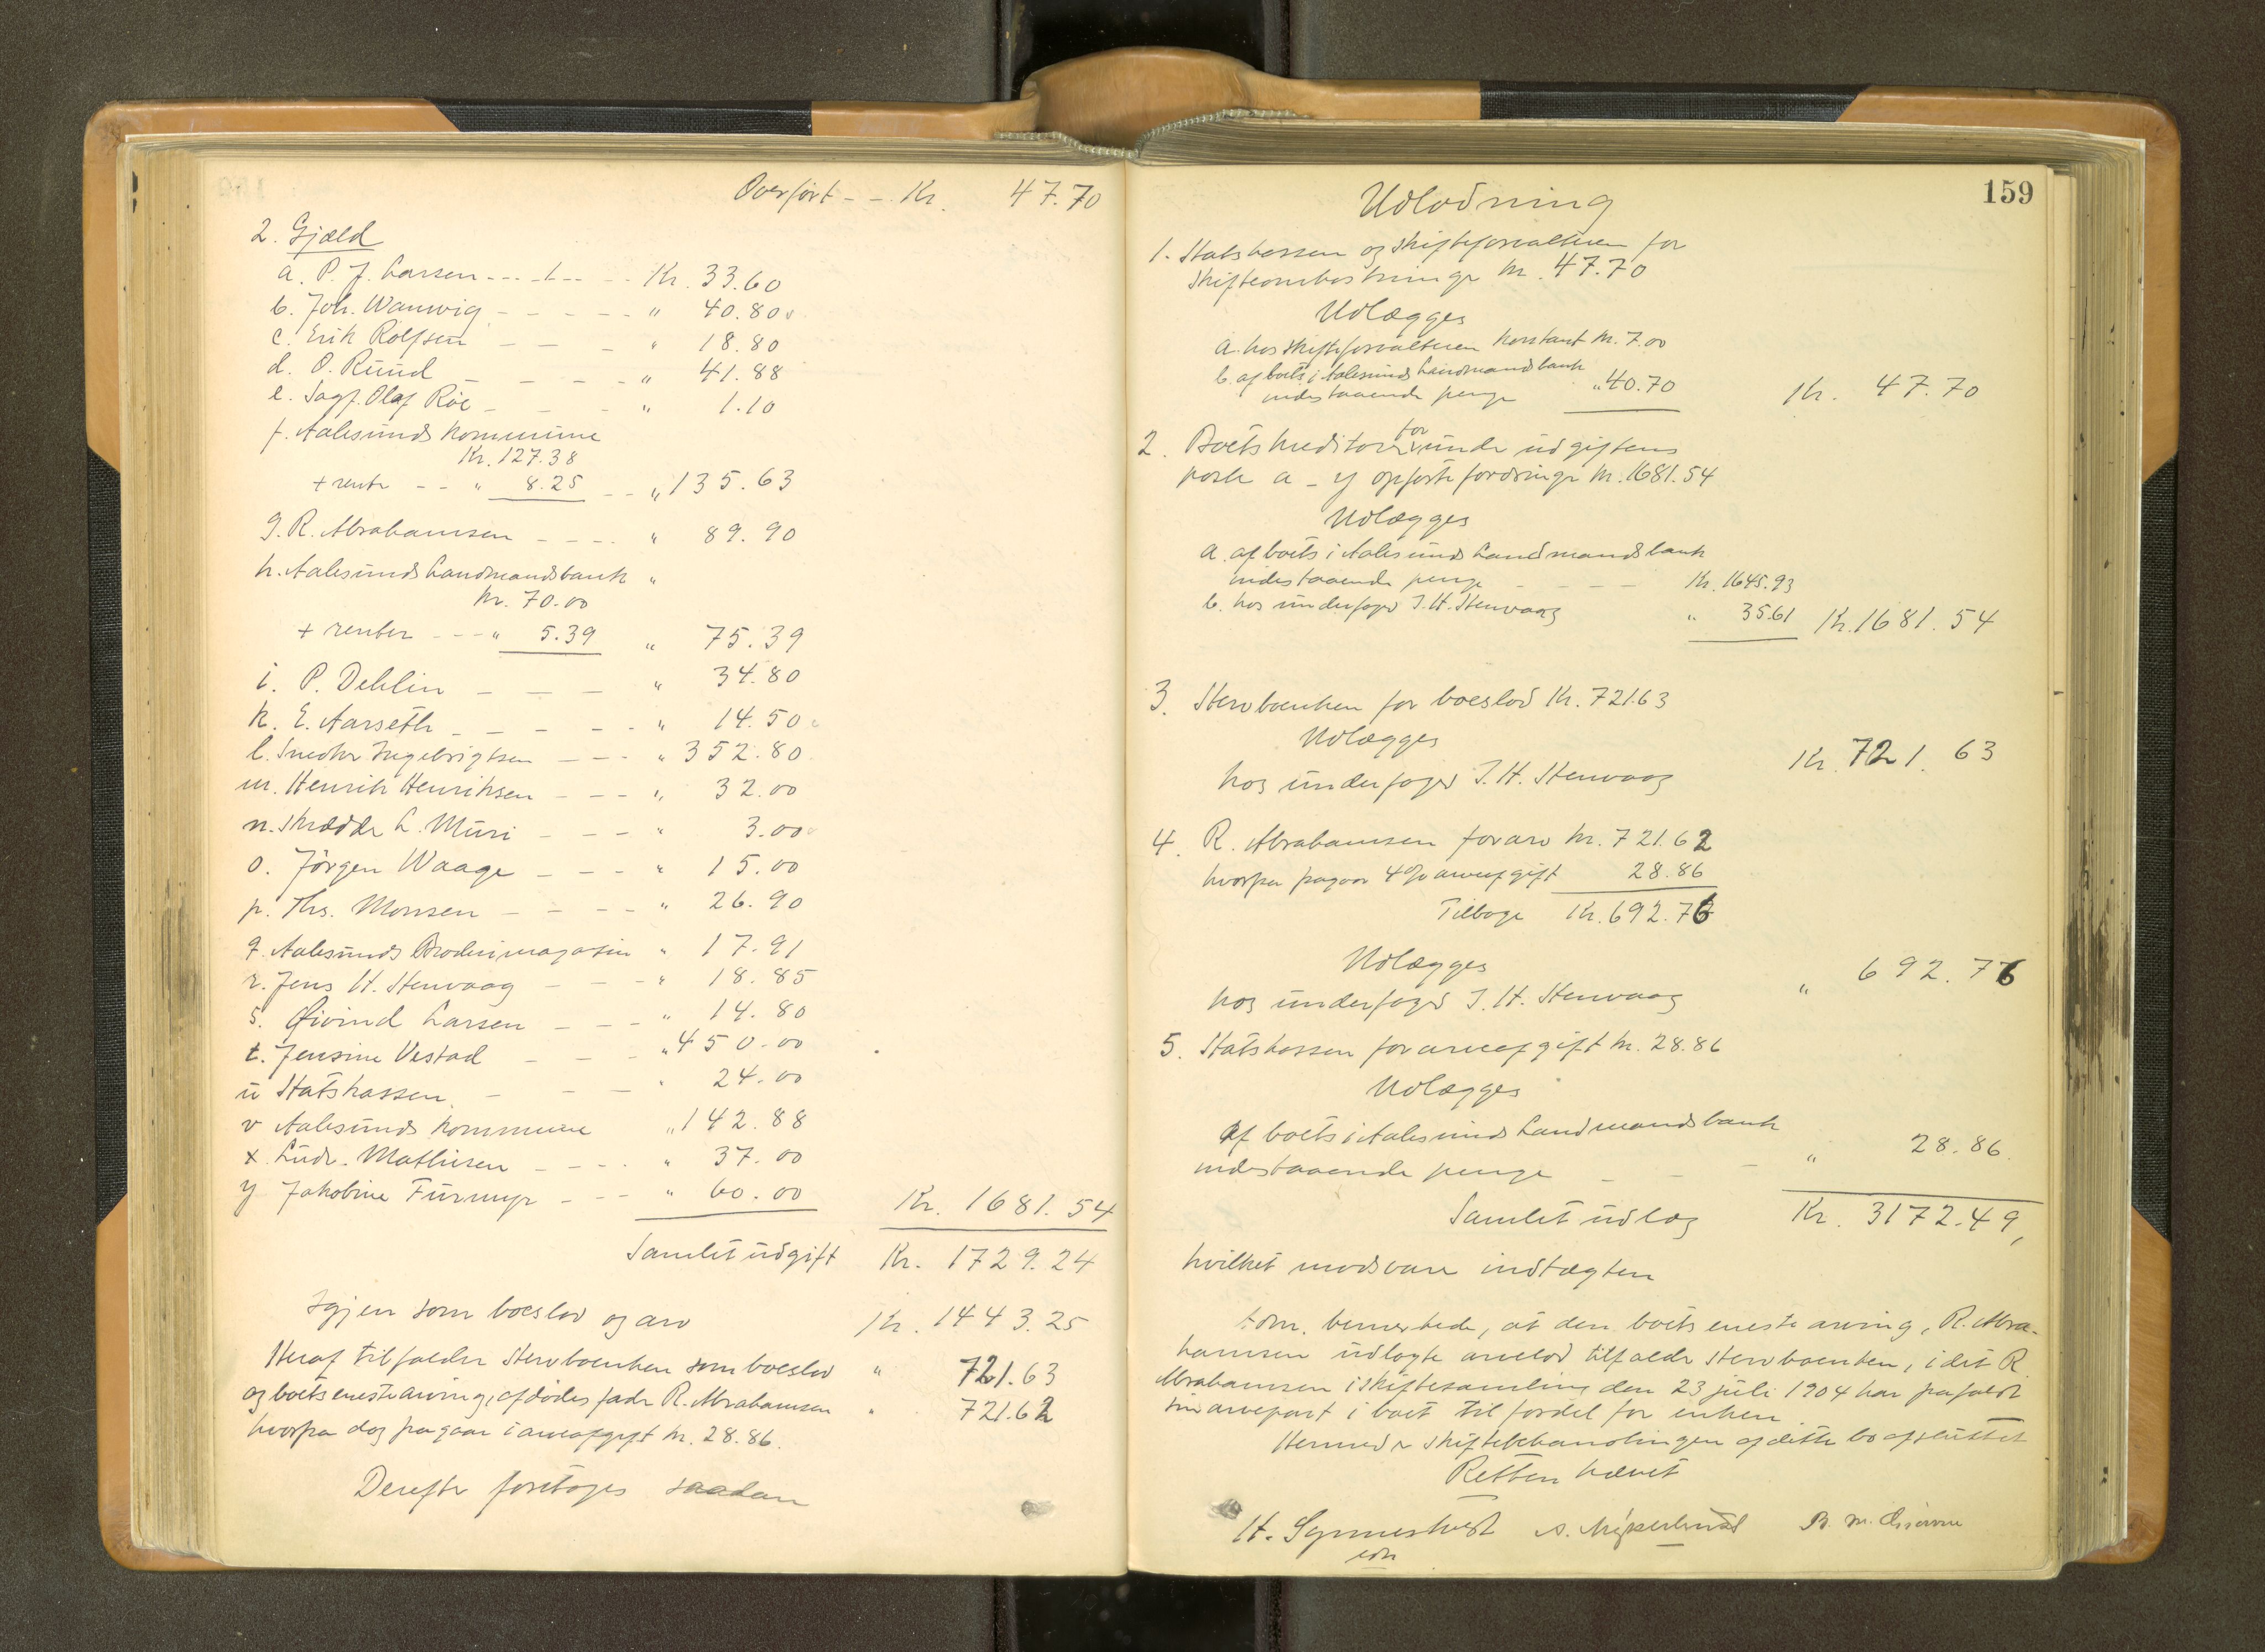 Overført - - Kr. 47.70
2. Gjæld
a. P. J. Larsen - - - - - Kr. 33.60
b. Joh. Wanvig - - - - - " 40.80
c. Erik Rolfsen - - - " 18.80
d. O. Ruud - - - - " 41.88
e. Sagf. Olaf Röe - - - " 1.10
f. Aalesunds kommune
Kr. 127.38
+ rente - - " 8.25 - - " 135.63
g. R. Abrahamsen - - - - " 89.90
h. Aalesunds Landmandsbank "
kr. 70.00
+ renter - - - " 5.39 " 75.39
i. P. Dehlin - - - " 34.80
k. E. Aarseth - - - - - " 14.50
l. Snedker Ingebrigtsen - - - " 352.80
m. Henrik Henriksen - - - " 32.00
n. Skrædder L. Muri - - - " 3.00
o. Jörgen Waage - - - " 15.00
p. Ths. Monsen - - - - " 26.90
q. Aalesunds Broderimagasin " 17.91
r. Jens H. Stenvaag - - - " 18.85
s. Øivind Larsen - - - " 14.80
t. Jensine Vestad - - - " 450.00
u Statskassen - - - " 24.00
v Aalesunds kommune " 142.88
x Ludv. Mathisen - - - - " 37.00
y Jakobine Furmyr - - - " 60.00 Kr. 1681.54
Samlet udgift Kr. 1729.24
Igjen som boeslod og arv Kr. 1443.25
Heraf tilfalder stervboenken som boeslod " 721.63
og boets eneste arving, afdødes fader R. Abrahamsen " 721.62
hvorpaa dog paagaar i arveafgift kr. 28.86.
Derefter foretoges saadan
159
Udlodning
1. Statskassen og skifteforvalteren for
skifteomkostninger kr. 47.70
Udlægges
a. hos skifteforvalteren kontant kr. 7.00
b. af boets i Aalesunds Landmandsbank
indestaaende penge " 40.70 Kr. 47.70
2. Boets kreditorer for under udgiftens
post a - y opførte fordringer kr. 1681.54
Udlægges
a. af boets i Aalesunds Landmandsbank
indestaaende penge - - - - Kr. 1645.93
b. hos underfoged J. H. Stenvaag " 35.61 Kr. 1681.54
3. Stervboenken for boeslod Kr. 721.63
Udlægges
hos underfoged J. H. Stenvaag Kr. 721.63
4. R. Abrahamsen for arv kr. 721.62
hvorpaa paagaar 4% arveafgift 28.86
Tilbage Kr. 692.76
Udlægges
hos underfoged J. H. Stenvaag " 692.76
5. Statskassen for arveafgift kr. 28.86
Udlægges
Af boets i Aalesunds Landmandsbank
indestaaende penge - - - " 28.86.
Samlet udlæg Kr. 3172.49,
hvilket modsvarer indtægten
Adm. bemerkede, at den boets eneste arving, R. Abra-
hamsen udlagte arvelod tilfalder stervboenken, idet R.
Abrahamsen i skiftesamling den 23 juli 1904 har frafaldt
sin arvepart i boet til fordel for enken.
Hermed er skiftebehandlingen af dette bo afsluttet
Retten hævet
H. Synnestvedt
edr